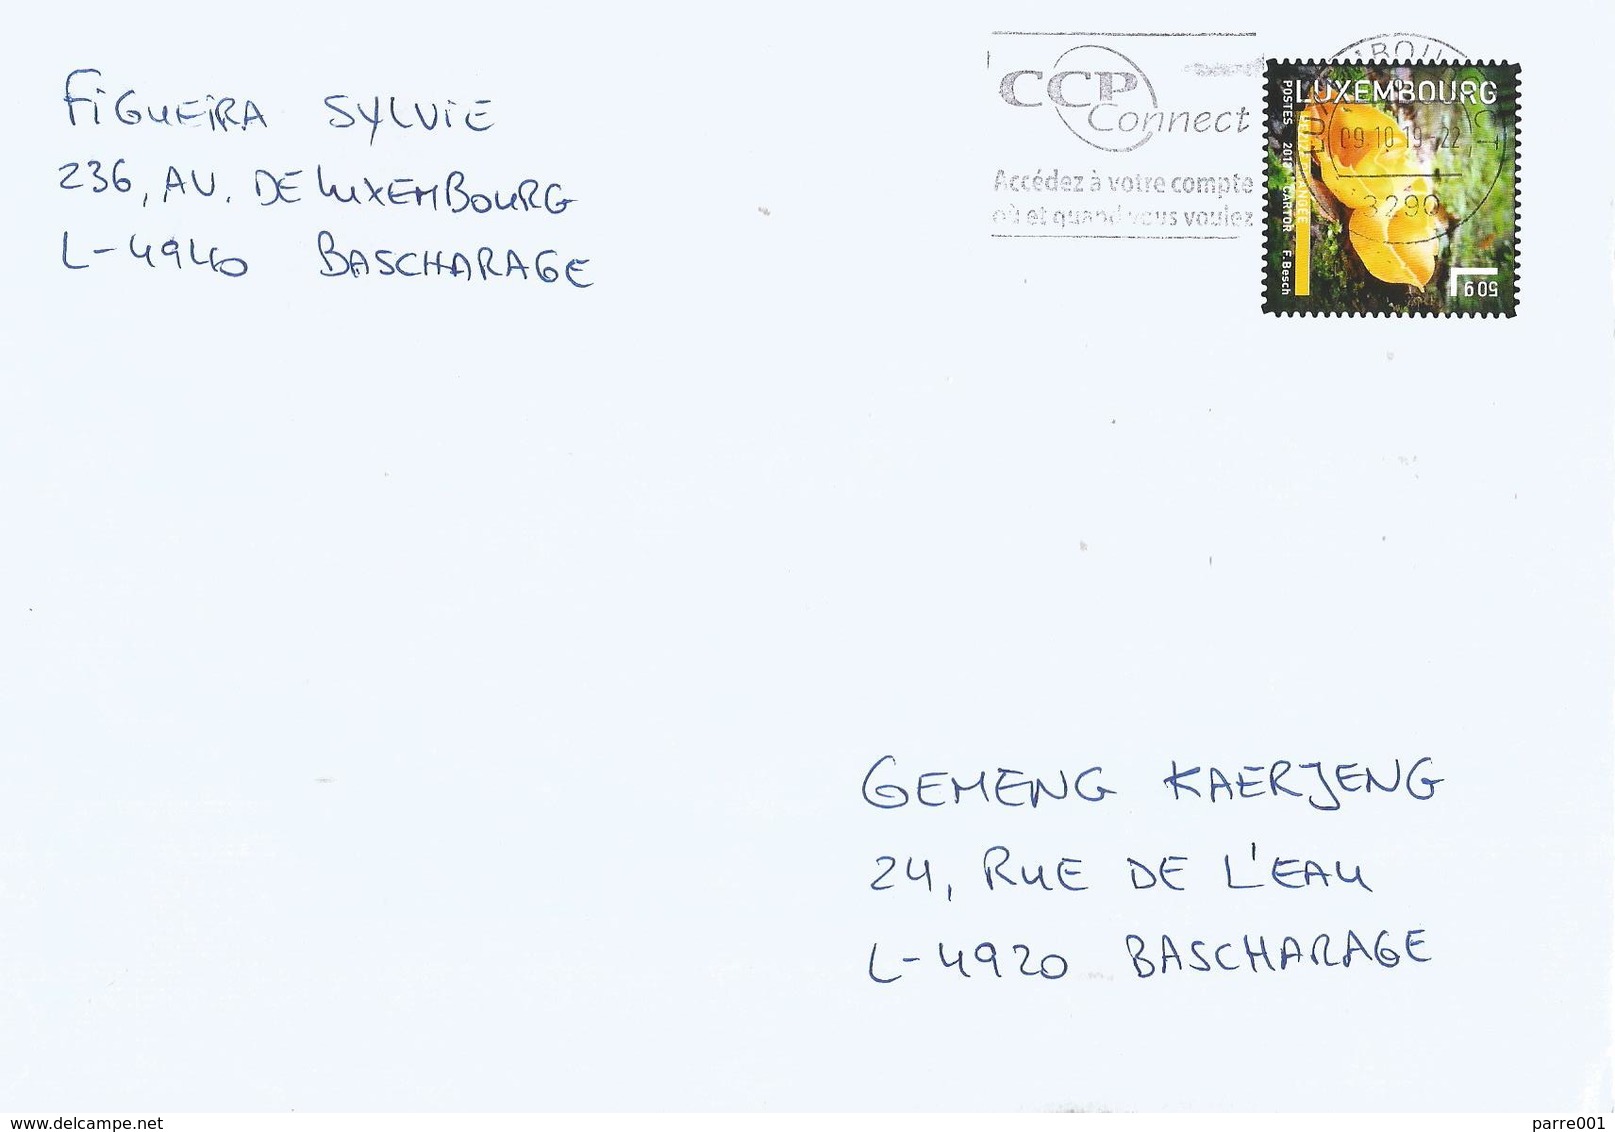 FIGUEIRA SYLVIE
236, AV. DE LUXEMBOURG
L-4940 BASCHARAGE
CCP
Connect
Accédez à votre compte
où et quand vous voulez
LUXEMBOURG
POSTES
CARTOR F. Besch
L
50g
09.10.19-22
3290
GEMENG KAERJENG
24, RUE DE L'EAU
L-4920 BASCHARAGE
www.delcampe.net
parre001